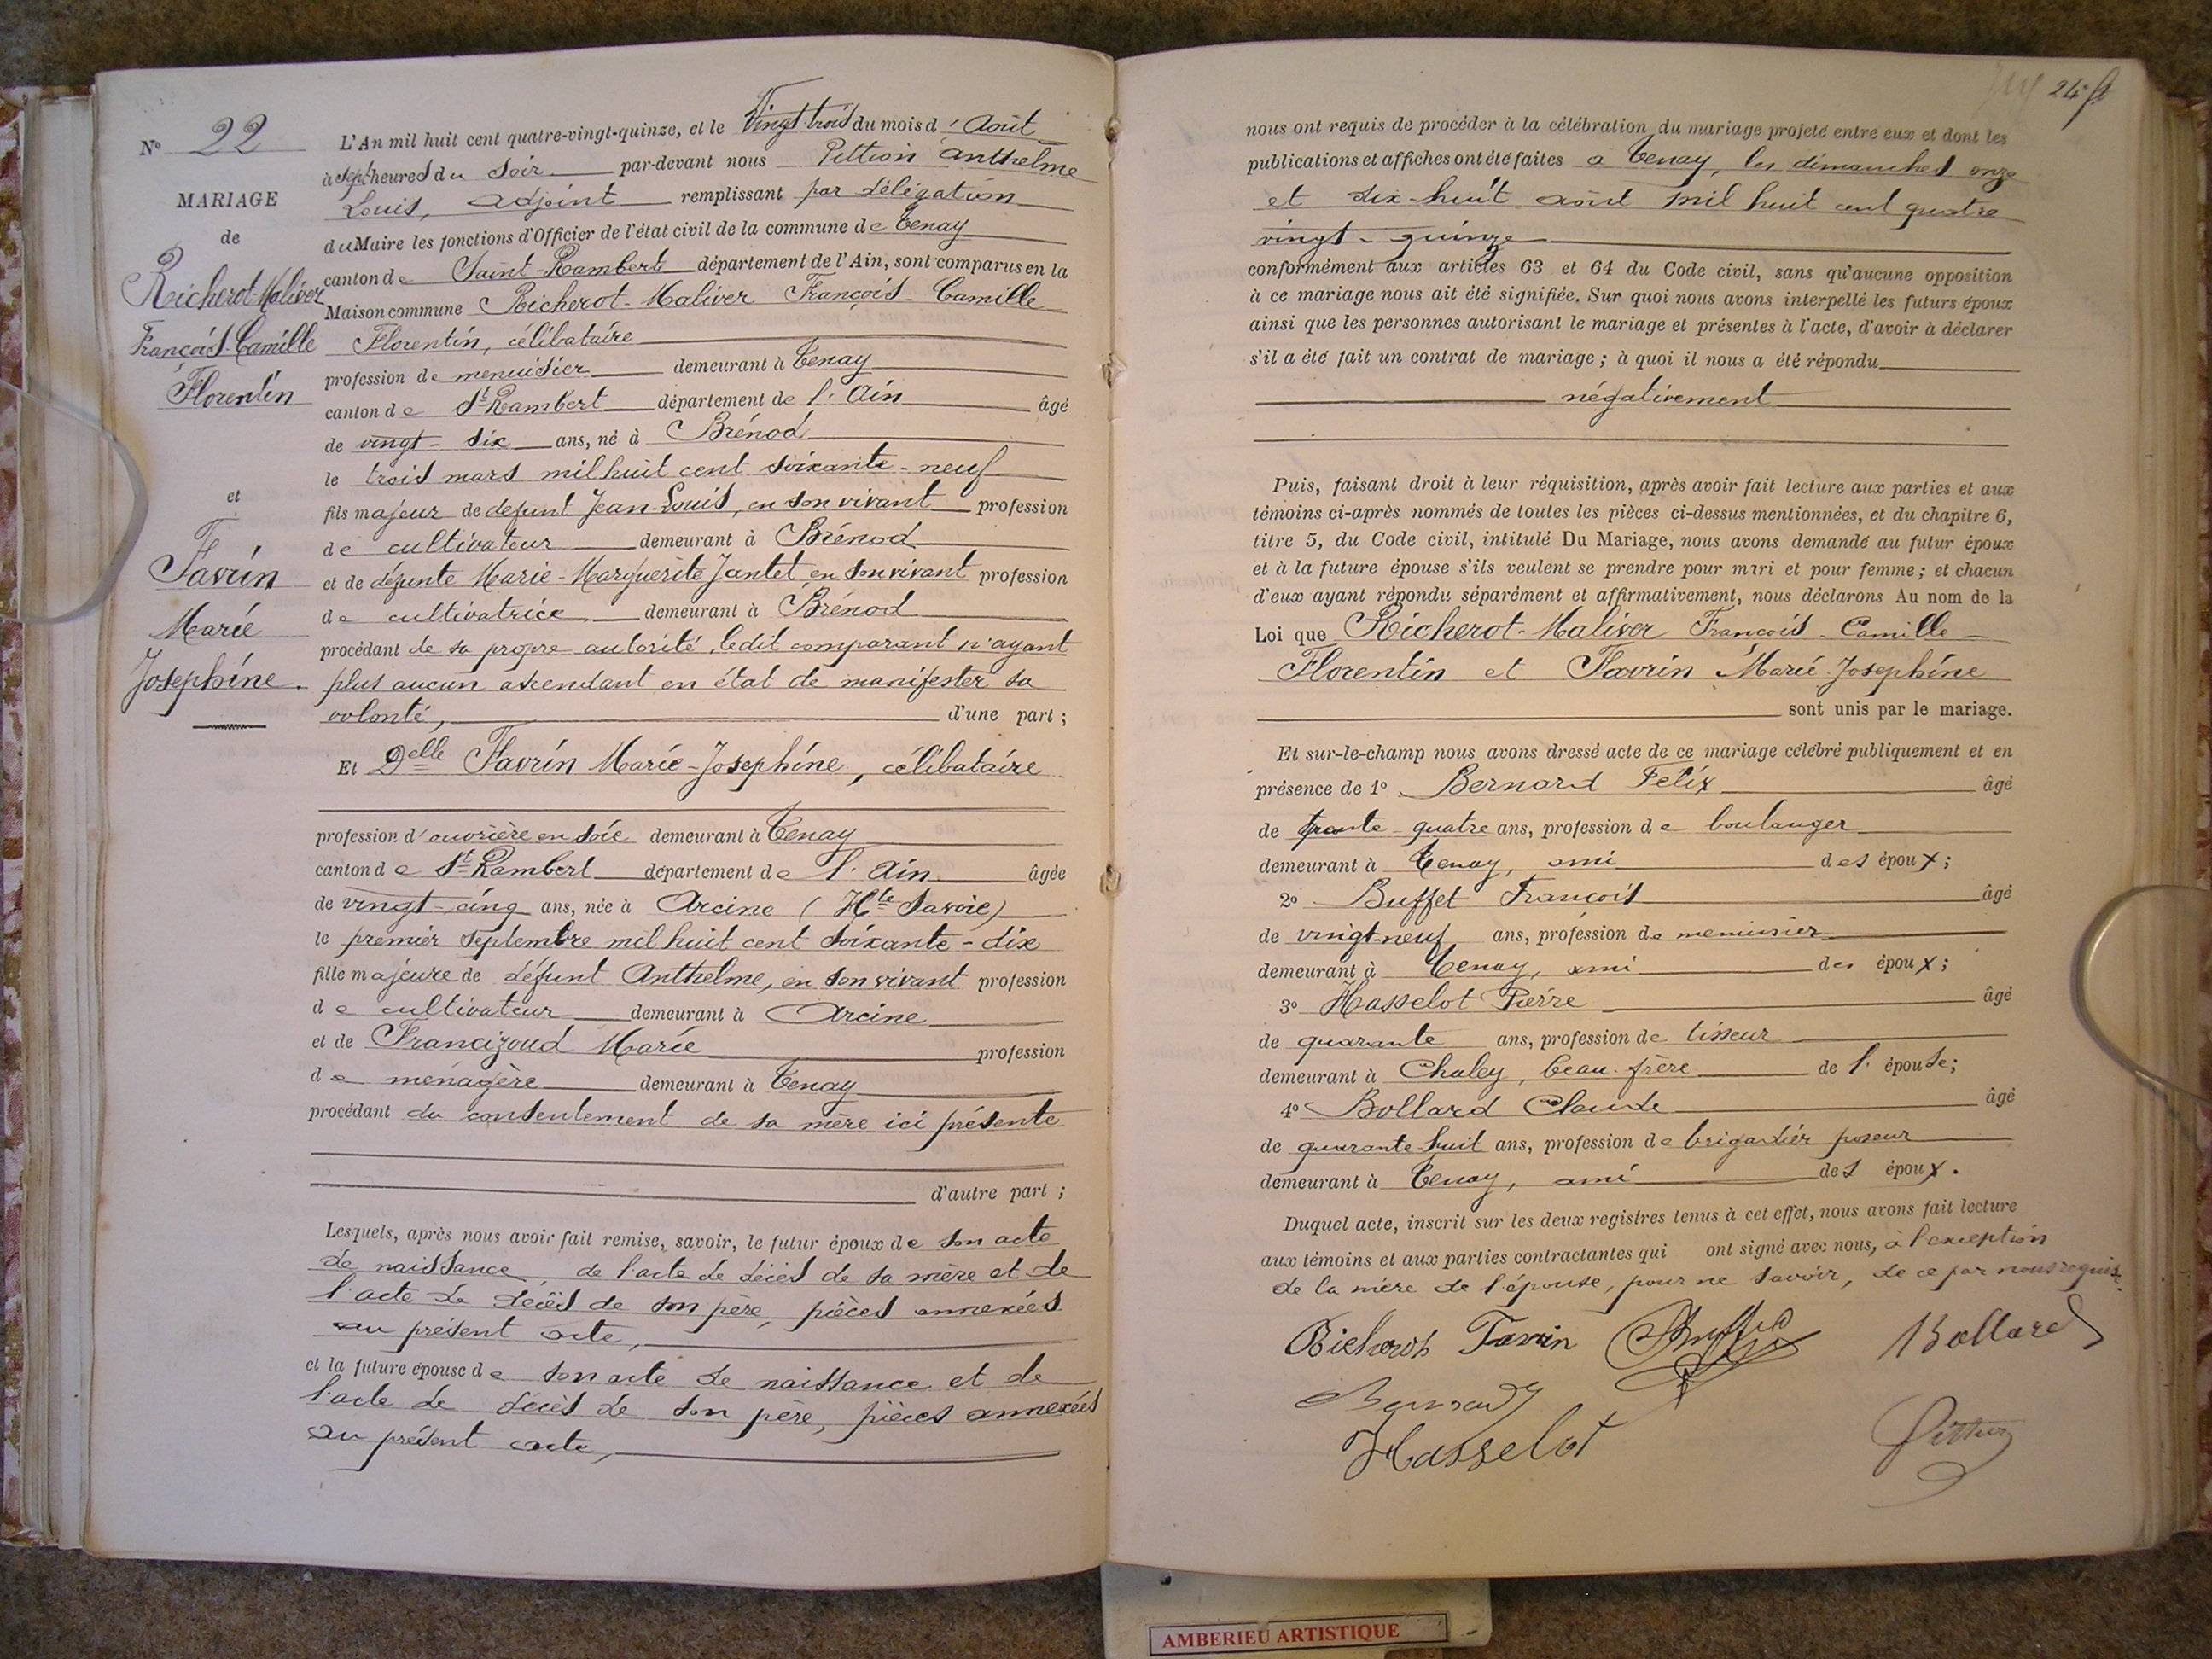 N° 22
MARIAGE
de
Richerot-Maliver
François-Camille
Florentin
et
Favrin
Marie
Josephine.
L'An mil huit cent quatre-vingt-quinze, et le Vingt trois du mois d'Août
à sept heures du soir par-devant nous Pittion Anthelme
Louis, adjoint remplissant par délégation
du Maire les fonctions d'Officier de l'état civil de la commune de Tenay
canton de Saint-Rambert département de l'Ain, sont comparus en la
Maison commune Richerot-Maliver François-Camille
Florentin, célibataire
profession de menuisier demeurant à Tenay
canton de St Rambert département de l'Ain âgé
de vingt-six ans, né à Brénod
le trois mars mil huit cent soixante-neuf
fils majeur de defunt Jean-Louis, en son vivant profession
de cultivateur demeurant à Brénod
et de défunte Marie-Marguerite Jantet en son vivant profession
de cultivatrice demeurant à Brénod
procédant de sa propre autorité, ledit comparant n'ayant
plus aucun ascendant en état de manifester sa
volonté, d'une part ;
Et Delle Favrin Marie-Josephine, célibataire
profession d'ouvrière en soie demeurant à Tenay
canton de St Rambert département de l'Ain âgée
de vingt-cinq ans, née à Arcine (Hte Savoie)
le premier septembre mil huit cent soixante-dix
fille majeure de défunt Anthelme, en son vivant profession
de cultivateur demeurant à Arcine
et de Francizoud Marie profession
de ménagère demeurant à Tenay
procédant du consentement de sa mère ici présente
d'autre part ;
Lesquels, après nous avoir fait remise, savoir, le futur époux de son acte
de naissance, de l'acte de décès de sa mère et de
l'acte de décès de son père, pièces annexées
au présent acte,
et la future épouse de son acte de naissance et de
l'acte de décès de son père, pièces annexées
au présent acte,
24
nous ont requis de procéder à la célébration du mariage projeté entre eux et dont les
publications et affiches ont été faites à Tenay, les dimanches onze
et dix-huit août mil huit cent quatre
vingt-quinze
conformément aux articles 63 et 64 du Code civil, sans qu'aucune opposition
à ce mariage nous ait été signifiée. Sur quoi nous avons interpellé les futurs époux
ainsi que les personnes autorisant le mariage et présentes à l'acte, d'avoir à déclarer
s'il a été fait un contrat de mariage ; à quoi il nous a été répondu
négativement
Puis, faisant droit à leur réquisition, après avoir fait lecture aux parties et aux
témoins ci-après nommés de toutes les pièces ci-dessus mentionnées, et du chapitre 6,
titre 5, du Code civil, intitulé Du Mariage, nous avons demandé au futur époux
et à la future épouse s'ils veulent se prendre pour mari et pour femme ; et chacun
d'eux ayant répondu séparément et affirmativement, nous déclarons Au nom de la
Loi que Richerot-Maliver François-Camille-
Florentin et Favrin Marie-Josephine
sont unis par le mariage.
Et sur-le-champ nous avons dressé acte de ce mariage célébré publiquement et en
présence de 1° Bernard Felix âgé
de trente-quatre ans, profession de boulanger
demeurant à Tenay, ami des époux ;
2° Buffet François âgé
de vingt-neuf ans, profession de menuisier
demeurant à Tenay, ami des époux ;
3° Hasselot Pierre âgé
de quarante ans, profession de tisseur
demeurant à Chaley, beau-frère de l'épouse ;
4° Bollard Claude âgé
de quarante huit ans, profession de brigadier poseur
demeurant à Tenay, ami des époux.
Duquel acte, inscrit sur les deux registres tenus à cet effet, nous avons fait lecture
aux témoins et aux parties contractantes qui ont signé avec nous, à l'exception
de la mère de l'épouse, pour ne savoir, de ce par nous requis.
Richerot Favrin Buffet Bollard
Bernard
Hasselot Pittion
AMBERIEU ARTISTIQUE